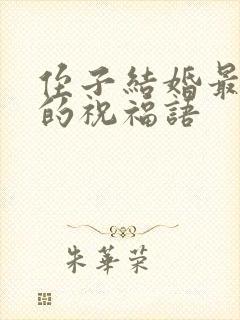 侄子結婚最
的祝福語
朱華荣